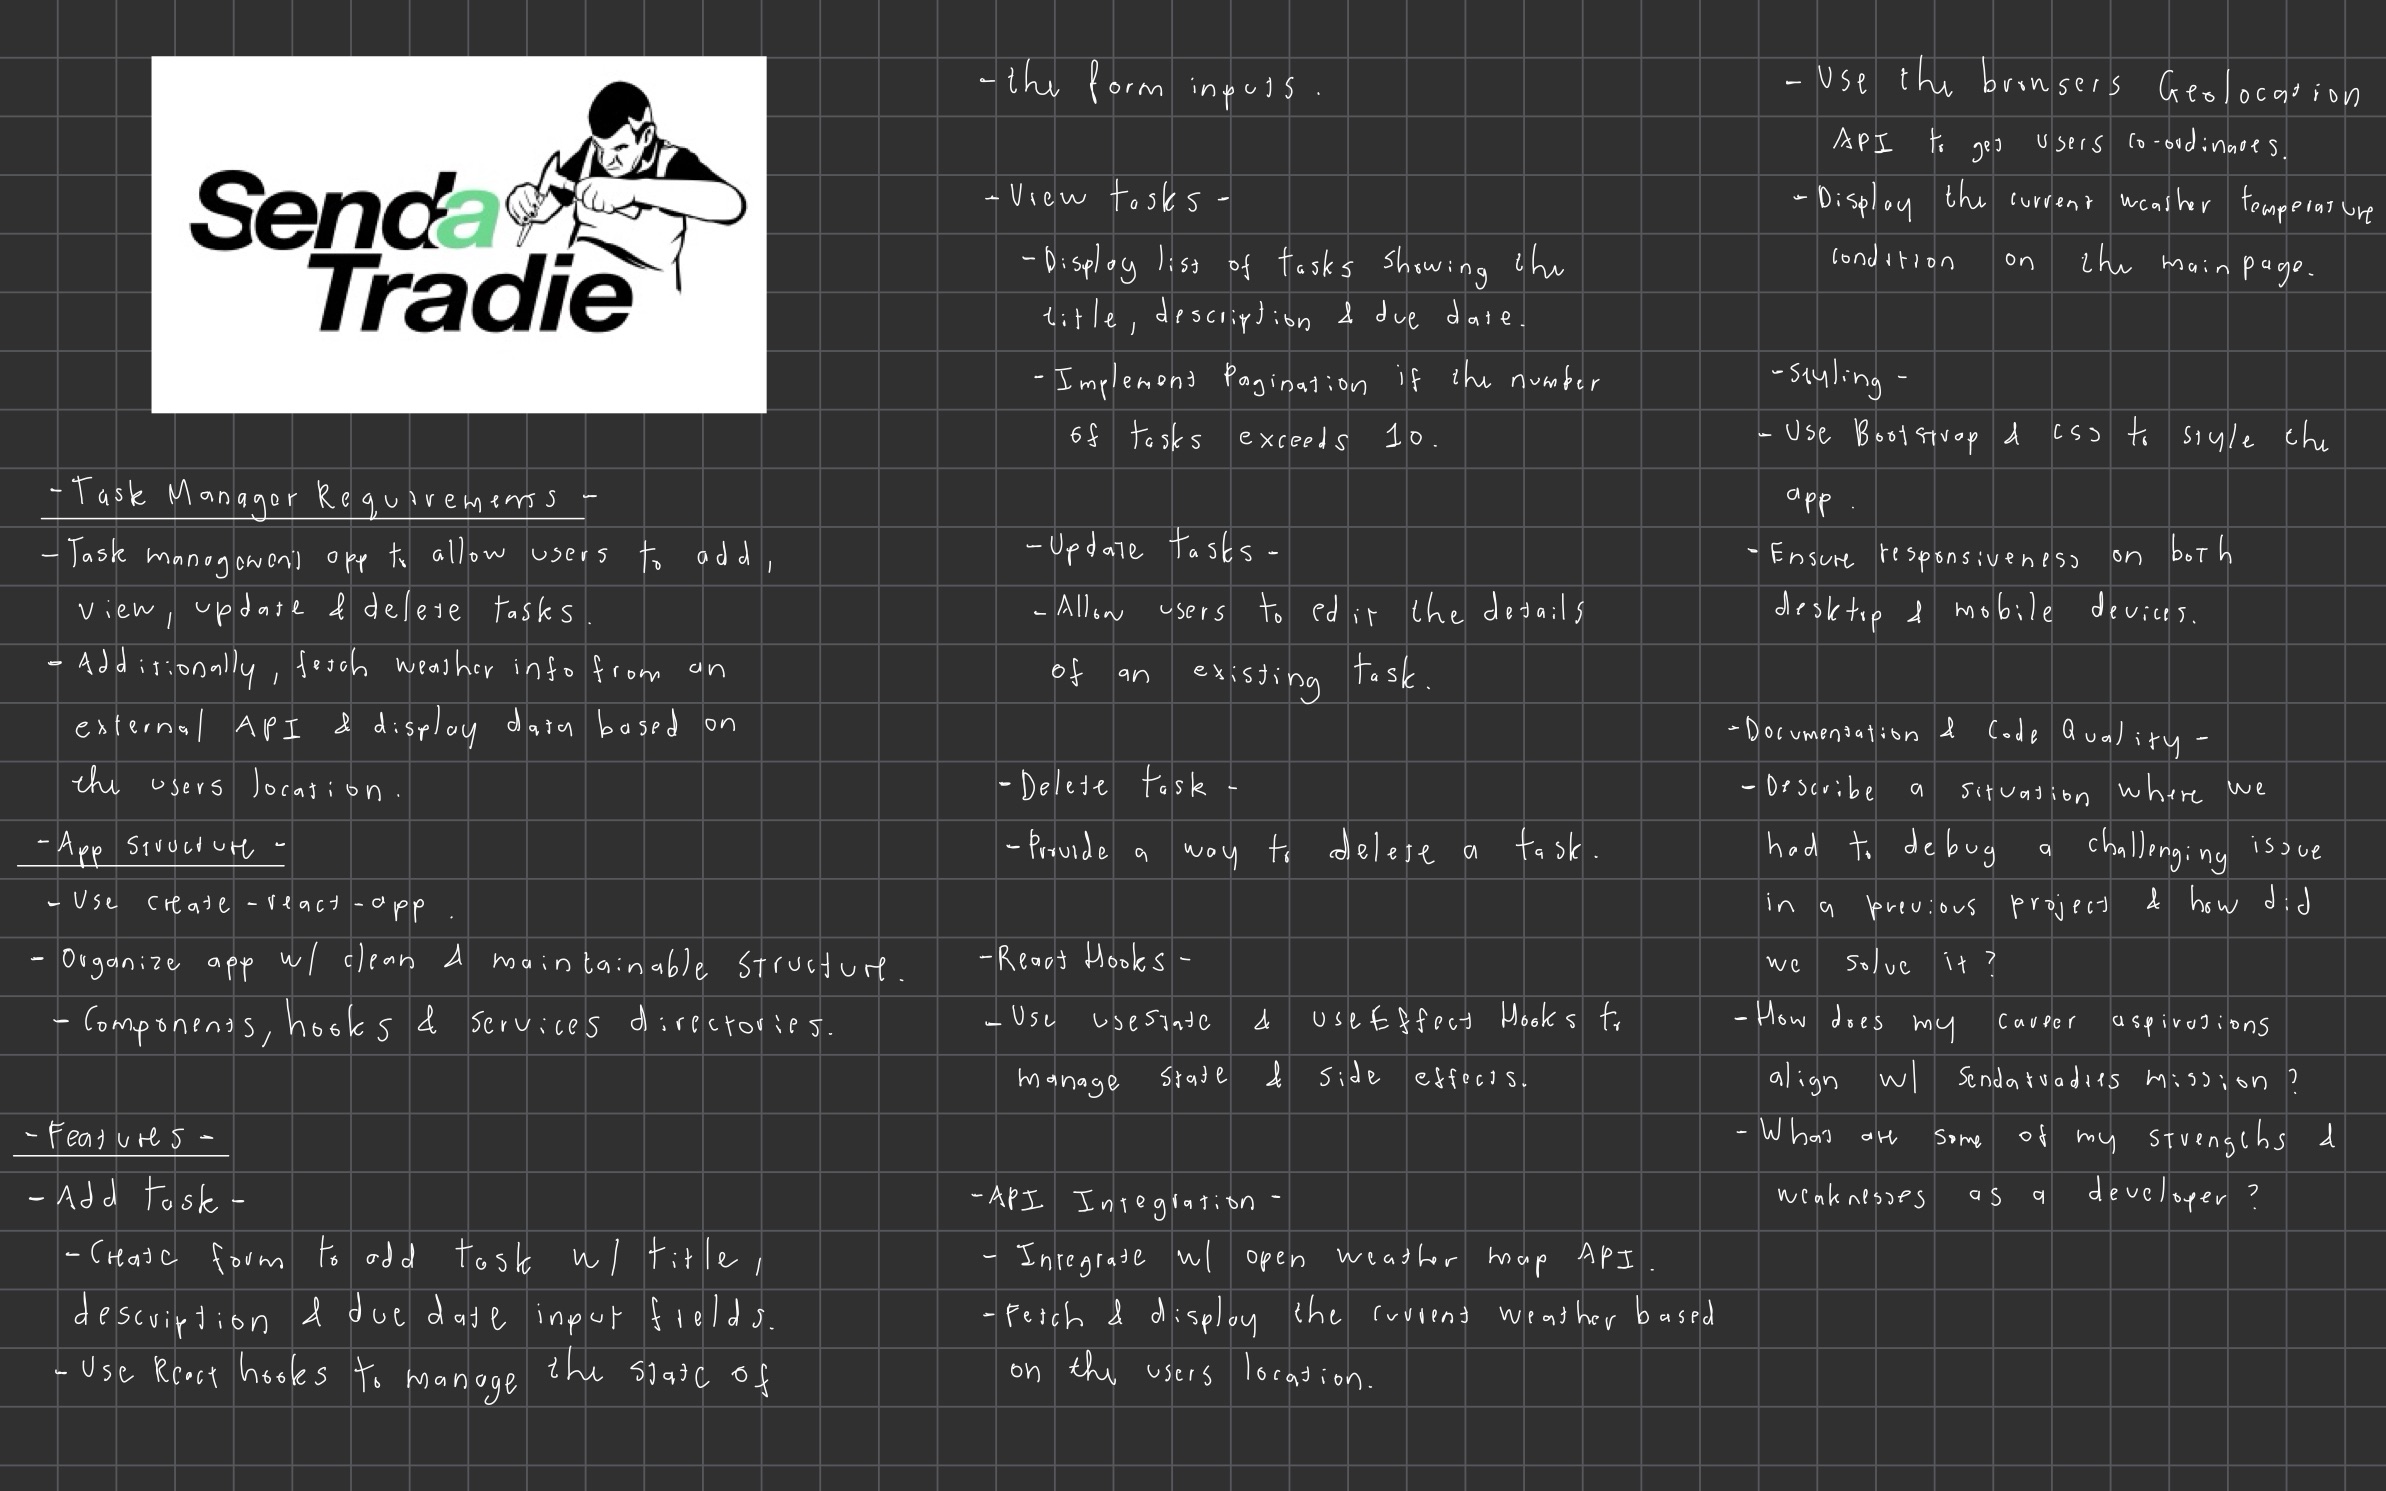 Senda
Tradie
- Task Manager Requirements -
- Task management app to allow users to add,
view, update & delete tasks.
- Additionally, fetch weather info from an
external API & display data based on
the users location.
- App Structure -
- Use create-react-app.
- Organize app w/ clean & maintainable structure.
- Components, hooks & services directories.
- Features -
- Add task -
- Create form to add task w/ title,
description & due date input fields.
- Use React hooks to manage the state of
- the form inputs.
- View tasks -
- Display list of tasks showing the
title, description & due date.
- Implement Pagination if the number
of tasks exceeds 10.
- Update tasks -
- Allow users to edit the details
of an existing task.
- Delete task -
- Provide a way to delete a task.
- React Hooks -
- Use useState & useEffect Hooks to
manage state & side effects.
- API Integration -
- Integrate w/ open weather map API.
- Fetch & display the current weather based
on the users location.
- Use the browsers Geolocation
API to get users co-ordinates.
- Display the current weather temperature
condition on the main page.
- Styling -
- Use Bootstrap & css to style the
app.
- Ensure responsiveness on both
desktop & mobile devices.
- Documentation & Code Quality -
- Describe a situation where we
had to debug a challenging issue
in a previous project & how did
we solve it?
- How does my career aspirations
align w/ Sendatradies mission?
- What are some of my strengths &
weaknesses as a developer?